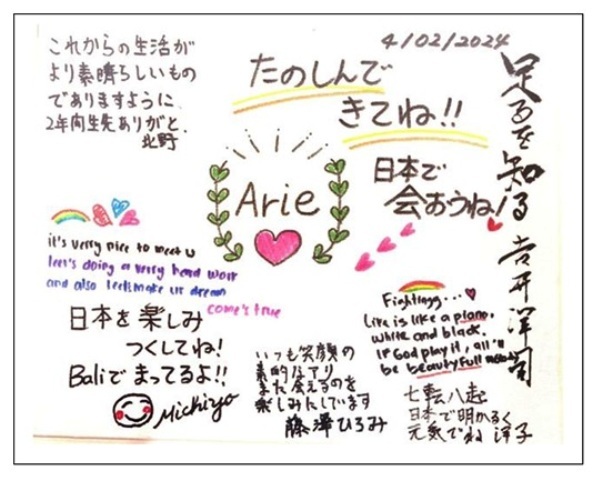 これからの生活が
より素晴らしいもの
でありますように
2年間先生ありがと
北野
たのしんで
きてね!!
4/02/2024
足るを知る 吉井洋司
Arie
日本で
会おうね!
it's verry nice to meet u
leet's doing a verry hard work
and also leets make ur dream
come's true
日本を楽しみ
つくしてね!
Baliで まってるよ!!
Michiyo
いつも笑顔の
素的なアリ
また会えるのを
楽しみにしています
藤澤ひろみ
Fightingg...
Life is like a piano.
White and black.
If God play it, all'll
be beautyfull
七転八起
日本で明かるく
元気でね 洋子